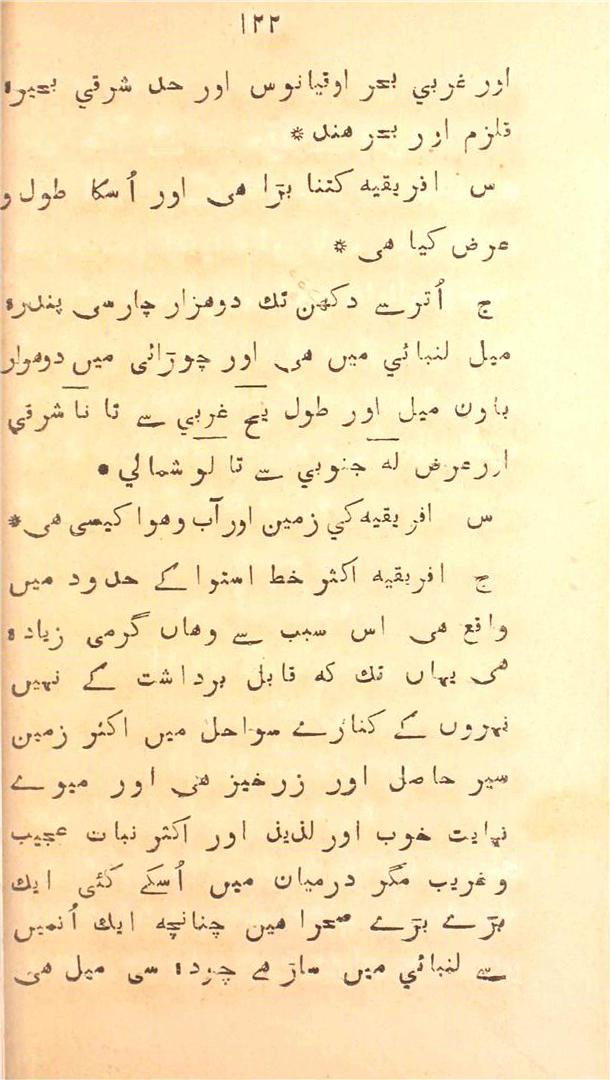 ١٢٢
اور غربي بحر اوقیانوس اور حد شرقي بحیرہ
قلزم اور بحر هند *
س افریقیه کتنا بڑا هی اور اُسکا طول و
عرض کیا هی *
ج اُترسے دکھن تك دوهزار چارسی پندرہ
میل لنبائي میں هی اور چوڑائی میں دوهوار
باون میل اور طول یح غربي سے تا نا شرقي
اور عرض له جنوبي سے تا لو شمالي •
س افریقیه کي زمین اور آب وهوا کیسی هی *
ج افریقیه اکثر خط استوا کے حدود میں
واقع هی اس سبب سے وهاں گرمی زیادہ
هی یہاں تك که قابل برداشت کے نہیں
نہروں کے کنارے سواحل میں اکثر زمین
سیر حاصل اور زرخیز هی اور میوے
نہایت خوب اور لذیذ اور اکثر نبات عجیب
و غریب مگر درمیان میں اُسکے کئی ایك
بڑے بڑے صحرا هین چنانچه ایك اُنمیں
سے لنبائي میں ساڑھے چودہ سی میل هی